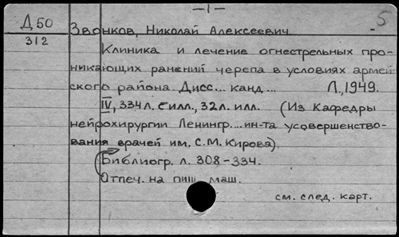 -1-
5
Д 50
312
Звонков, Николай Алексеевич.
Клиника и лечение огнестрельных про-
никающих ранений черепа в условиях армей
ского района. Дисс... канд... Л., 1949.
IV, 334 л. с илл., 32 л. илл. (Из Кафедры
нейрохирургии Ленингр....ин-та усовершенство-
вания врачей им. С.М. Кирова).
Библиогр. л. 308-334.
Отпеч. на пиш. маш.
см. след. карт.